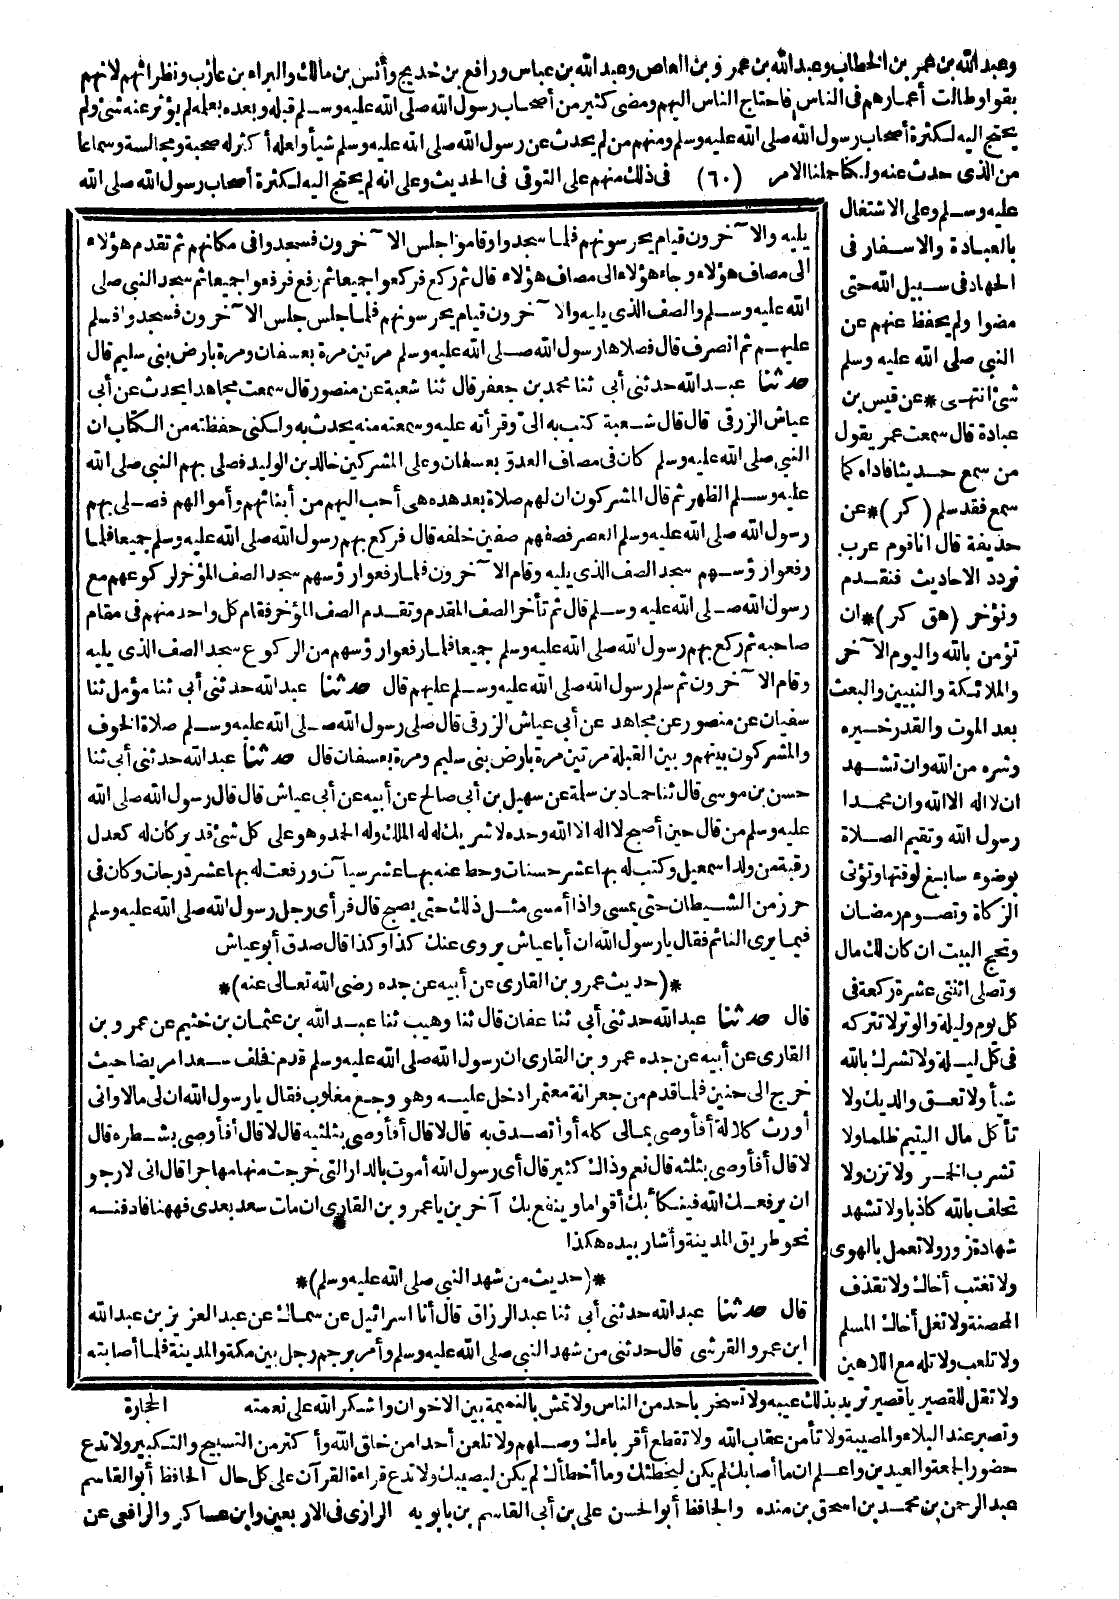 وعبد الله بن عمر بن الخطاب وعبد الله بن عمرو بن العاص وعبد الله بن عباس ورافع بن خديج وأنس بن مالك والبراء بن عازب ونظرائهم لانهم
بقوا وطالت أعمارهم فى الناس فاحتاج الناس اليهم ومضى كثير من أصحاب رسول الله صلى الله عليه وسلم قبله وبعده بعلمه لم يؤثر عنه شئ ولم
يحتج اليه لكثرة أصحاب رسول الله صلى الله عليه وسلم ومنهم من لم يحدث عن رسول الله صلى الله عليه وسلم شيأ ولعله أكثر له صحبة ومجالسة وسماعا
من الذى حدث عنه ولكنا حملنا الامر (٦٠) فى ذلك منهم على التوقى فى الحديث وعلى انه لم يحتج اليه لكثرة أصحاب رسول الله صلى الله
عليه وسلم وعلى الاشتغال
بالعبادة والاسفار فى
الجهاد فى سبيل الله حتى
مضوا ولم يحفظ عنهم عن
النبي صلى الله عليه وسلم
شئ انتهى * عن قيس بن
عبادة قال سمعت عمر يقول
من سمع حديثا فاداه كما
سمع فقد سلم (كر) * عن
حذيفة قال انا قوم عرب
نردد الاحاديث فنقدم
ونؤخر (هق كر) * ان
تؤمن بالله واليوم الآخر
والملائكة والنبيين والبعث
بعد الموت والقدر خيره
وشره من الله وان تشهد
ان لا اله الا الله وان محمدا
رسول الله وتقيم الصلاة
بوضوء سابغ لوقتها وتؤتى
الزكاة وتصوم رمضان
وتحج البيت ان كان لك مال
وتصلى اثنتى عشرة ركعة فى
كل يوم وليلة والوتر لا تتركه
فى كل ليلة ولا تشرك بالله
شيأ ولا تعق والديك ولا
تأكل مال اليتيم ظلما ولا
تشرب الخمر ولا تزن ولا
تحلف بالله كاذبا ولا تشهد
شهادة زور ولا تعمل بالهوى
ولا تغتب أخاك ولا تقذف
المحصنة ولا تغل أخاك المسلم
ولا تلعب ولا تله مع اللاهين
ولا تقل للقصير يا قصير تريد بذلك عيبه ولا تسخر باحد من الناس ولا تمش بالنميمة بين الاخوان واشكر الله على نعمته
وتصبر عند البلاء والمصيبة ولا تأمن عقاب الله ولا تقطع أقرباءك وصلهم ولا تلعن أحدا من خلق الله وأكثر من التسبيح والتكبير ولا تدع
حضور الجمعة والعيدين واعلم ان ما أصابك لم يكن ليخطئك وما أخطأك لم يكن ليصيبك ولا تدع قراءة القرآن على كل حال الحافظ أبو القاسم
عبد الرحمن بن محمد بن اسحق بن منده والحافظ أبو الحسن على بن أبى القاسم بن بابويه الرازى فى الاربعين وابن عساكر والرافعى عن
يليه والآخرون قيام يحرسونهم فلما سجدوا وقاموا جلس الآخرون فسجدوا فى مكانهم ثم تقدم هؤلاء
الى مصاف هؤلاء وجاء هؤلاء الى مصاف هؤلاء قال ثم ركع فركعوا جميعا ثم رفع فرفعوا جميعا ثم سجد النبى صلى
الله عليه وسلم والصف الذى يليه والآخرون قيام يحرسونهم فلما جلس جلس الآخرون فسجدوا فسلم
عليهم ثم انصرف قال فصلاها رسول الله صلى الله عليه وسلم مرتين مرة بعسفان ومرة بارض بنى سليم قال
حدثنا عبد الله حدثنى أبى ثنا محمد بن جعفر قال ثنا شعبة عن منصور قال سمعت مجاهدا يحدث عن أبى
عياش الزرقى قال قال شعبة كتب به الى وقرأته عليه وسمعته منه يحدث به ولكنى حفظته من الكتاب ان
النبى صلى الله عليه وسلم كان فى مصاف العدو بعسفان وعلى المشركين خالد بن الوليد فصلى بهم النبى صلى الله
عليه وسلم الظهر ثم قال المشركون ان لهم صلاة بعد هذه هى أحب اليهم من أبنائهم وأموالهم فصلى بهم
رسول الله صلى الله عليه وسلم العصر فصفهم صفين خلفه قال فركع بهم رسول الله صلى الله عليه وسلم جميعا فلما
رفعوا رؤسهم سجد الصف الذى يليه وقام الآخرون فلما رفعوا رؤسهم سجد الصف المؤخر لركوعهم مع
رسول الله صلى الله عليه وسلم قال ثم تأخر الصف المقدم وتقدم الصف المؤخر فقام كل واحد منهم فى مقام
صاحبه ثم ركع بهم رسول الله صلى الله عليه وسلم جميعا فلما رفعوا رؤسهم من الركوع سجد الصف الذى يليه
وقام الآخرون ثم سلم رسول الله صلى الله عليه وسلم عليهم قال حدثنا عبد الله حدثنى أبى ثنا مؤمل ثنا
سفيان عن منصور عن مجاهد عن أبى عياش الزرقى قال صلى رسول الله صلى الله عليه وسلم صلاة الخوف
والمشركون بينهم وبين القبلة مرتين مرة بارض بنى سليم ومرة بعسفان قال حدثنا عبد الله حدثنى أبى ثنا
حسن بن موسى قال ثنا حماد بن سلمة عن سهيل بن أبى صالح عن أبيه عن أبى عياش قال قال رسول الله صلى الله
عليه وسلم من قال حين أصبح لا اله الا الله وحده لا شريك له له الملك وله الحمد وهو على كل شئ قدير كان له كعدل
رقبة من ولد اسمعيل وكتب له بها عشر حسنات وحط عنه بها عشر سيآت ورفعت له بها عشر درجات وكان فى
حرز من الشيطان حتى يمسى واذا أمسى مثل ذلك حتى يصبح قال فرأى رجل رسول الله صلى الله عليه وسلم
فيما يرى النائم فقال يا رسول الله ان أبا عياش يروى عنك كذا وكذا قال صدق أبو عياش
*(حديث عمرو بن القارى عن أبيه عن جده رضى الله تعالى عنه)*
قال حدثنا عبد الله حدثنى أبى ثنا عفان قال ثنا وهيب ثنا عبد الله بن عثمان بن خثيم عن عمرو بن
القارى عن أبيه عن جده عمرو بن القارى ان رسول الله صلى الله عليه وسلم قدم فخلف سعدا مريضا حيث
خرج الى حنين فلما قدم من جعرانة معتمرا دخل عليه وهو وجع مغلوب فقال يا رسول الله ان لى مالا وانى
أورث كلالة أفأوصى بمالى كله أو أتصدق به قال لا قال أفأوصى بثلثيه قال لا قال أفأوصى بشطره قال
لا قال أفأوصى بثلثه قال نعم وذاك كثير قال أى رسول الله أموت بالدار التى خرجت منها مهاجرا قال انى لارجو
ان يرفعك الله فينكأ بك أقواما وينفع بك آخرين يا عمرو بن القارى ان مات سعد بعدى فههنا فادفنه
نحو طريق المدينة وأشار بيده هكذا
*(حديث من شهد النبي صلى الله عليه وسلم)*
قال حدثنا عبد الله حدثنى أبى ثنا عبد الرزاق قال أنا اسرائيل عن سماك عن عبد العزيز بن عبد الله
ابن عمرو القرشى قال حدثنى من شهد النبى صلى الله عليه وسلم وأمر برجم رجل بين مكة والمدينة فلما أصابته
الحجارة